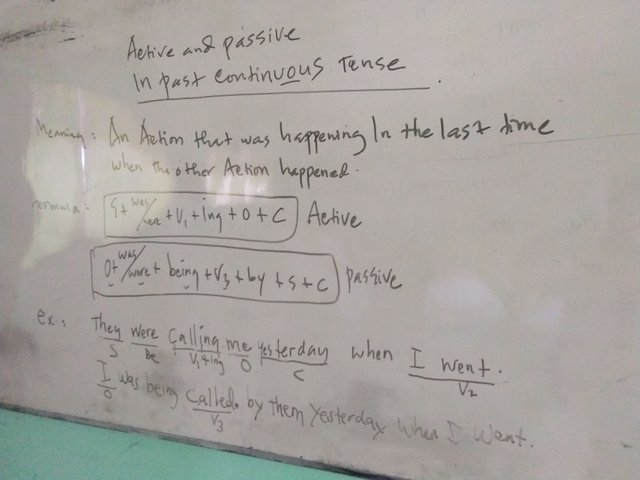 Active and passive
In past continuous Tense
Meaning: An Action that was happening In the last time
when the other Action happened.
Formula: S+ was/were + V1 + ing + O + C Active
O+ was/were + being + V3 + by + S + C passive
ex: They were calling me yesterday when I went.
S be V1+ing O C V2
I was being called, by them yesterday when I went.
O V3